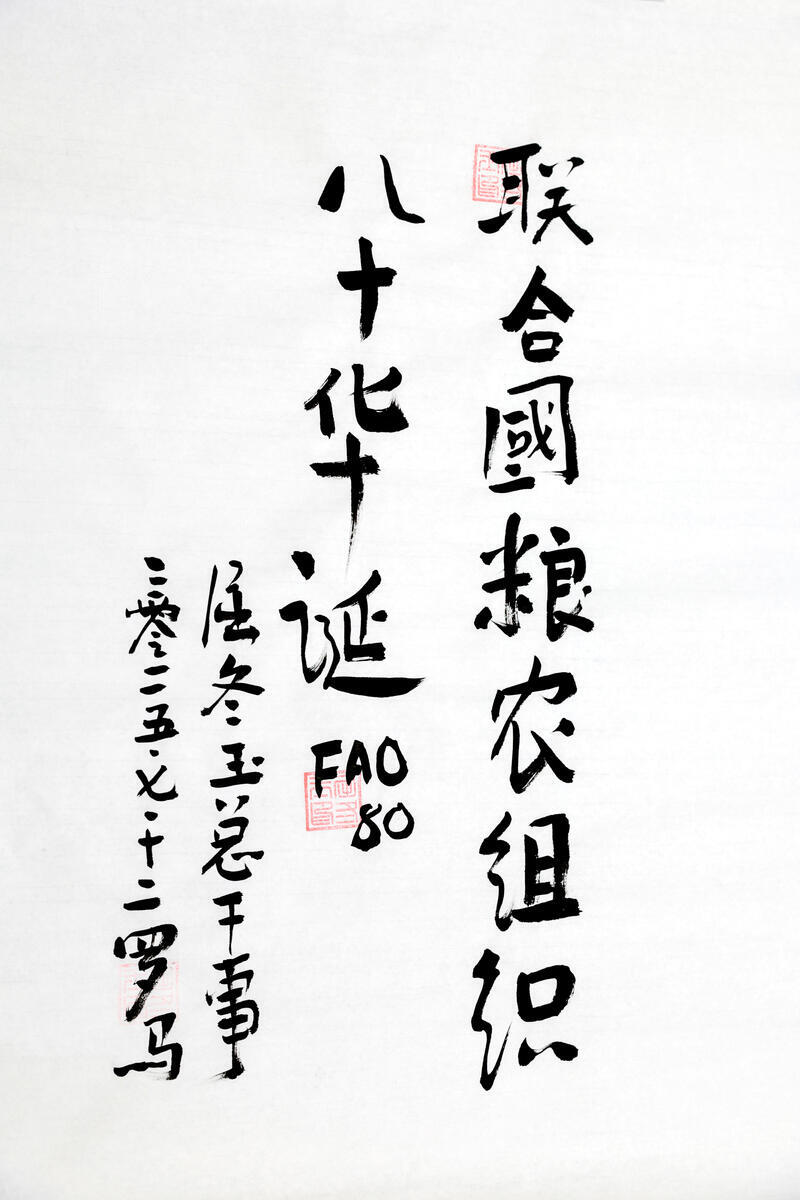 联合國粮农组织
八十华诞
FAO
80
屈冬玉总干事
二零二五·七·十二罗马